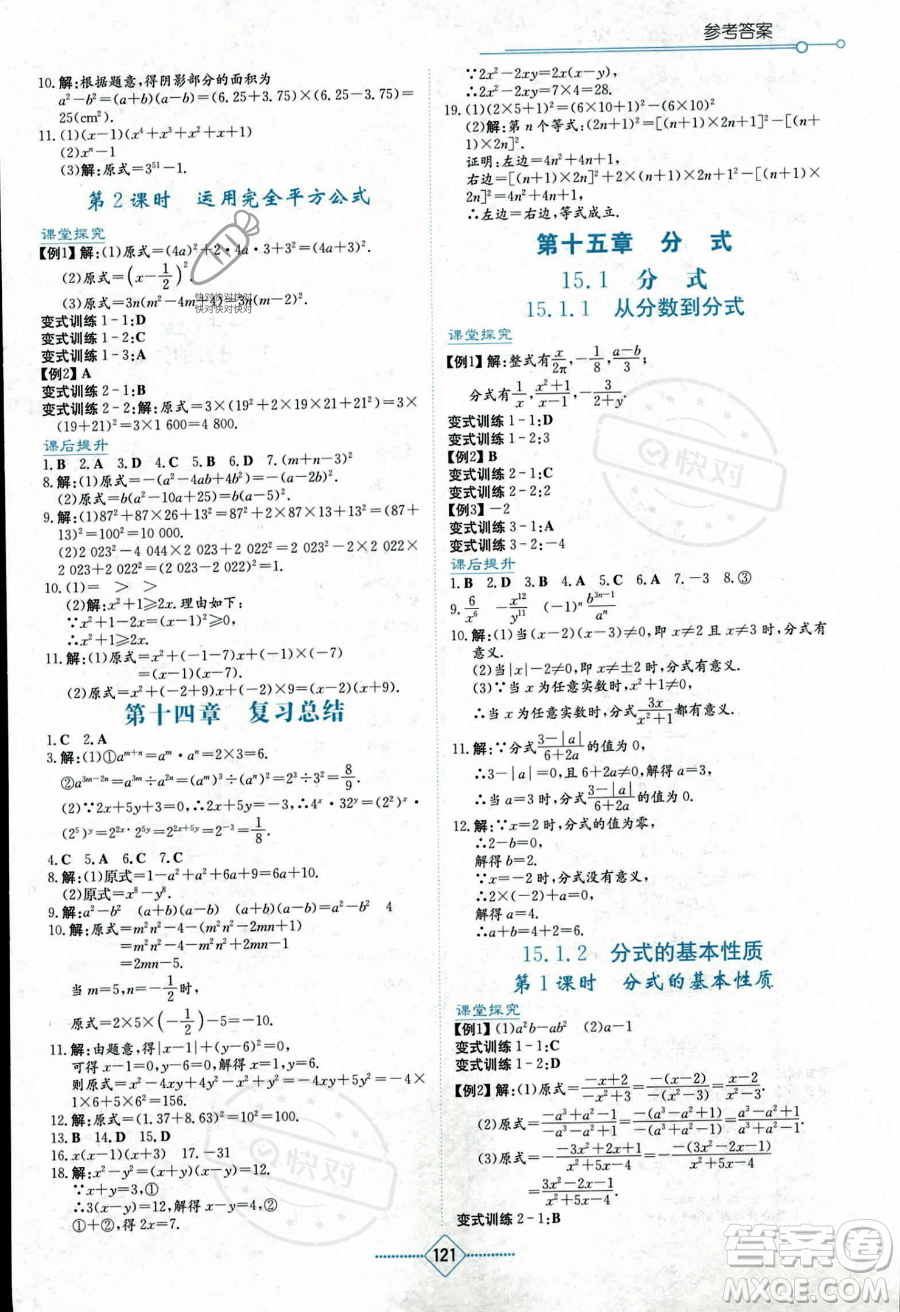 参考答案
10. 解:根据题意,得阴影部分的面积为
a²-b²=(a+b)(a-b)=(6.25+3.75)×(6.25-3.75)=
25(cm²).
11. (1)(x-1)(x⁴+x³+x²+x+1)
(2)xⁿ-1
(3)解:原式=3⁵¹-1.
第2课时 运用完全平方公式
课堂探究
【例1】解:(1)原式=(4a)²+2·4a·3+3²=(4a+3)².
(2)原式=(x-1/2)².
(3)原式=3n(m²-4m+4)=3n(m-2)².
快对快对快对
快对快对快对
变式训练1-1:D
变式训练1-2:C
【例2】A
变式训练2-1:B
变式训练2-2:解:原式=3×(19²+2×19×21+21²)=3×
(19+21)²=3×1 600=4 800.
课后提升
1. B 2. A 3. D 4. C 5. B 6. D 7. (m+n-3)²
8. 解:(1)原式=-(4a²-4ab+b²)=-(2a-b)².
(2)原式=b(a²-10a+25)=b(a-5)².
9. 解:(1)87²+87×26+13²=87²+2×87×13+13²=(87+
13)²=100²=10 000.
(2)2 023²-4 044×2 023+2 022²=2 023²-2×2 022×
2 023+2 022²=(2 023-2 022)²=1.
10. (1)= > >
(2)解:x²+1≥2x. 理由如下:
∵x²+1-2x=(x-1)²≥0,
∴x²+1≥2x.
11. 解:(1)原式=x²+(-1-7)x+(-1)×(-7)
=(x-1)(x-7).
(2)原式=(-2+9)x+(-2)×9=(x-2)(x+9).
第十四章 复习总结
1. C 2. A
3. 解:(1)①aᵐ⁺ⁿ=aᵐ·aⁿ=2×3=6.
②a³ᵐ⁻²ⁿ=a³ᵐ÷a²ⁿ=(aᵐ)³÷(aⁿ)²=2³÷3²=8/9.
(2)∵2x+5y+3=0,∴2x+5y=-3,∴4ˣ·32ʸ=(2²)ˣ·
(2⁵)ʸ=2²ˣ·2⁵ʸ=2²ˣ⁺⁵ʸ=2⁻³=1/8.
4. C 5. A 6. C 7. C
8. 解:(1)原式=1-a²+a²+6a+9=6a+10.
(2)原式=x⁸-y⁸.
9. 解:a²-b² (a+b)(a-b) (a+b)(a-b)=a²-b² 4
10. 解:原式=m²n²-4-(m²n²-2mn+1)
=m²n²-4-m²n²+2mn-1
=2mn-5.
当m=5,n=-1/2时,
原式=2×5×(-1/2)-5=-10.
11. 解:由题意,得|x-1|+(y-6)²=0,
可得x-1=0,y-6=0,解得x=1,y=6.
则原式=x²-4xy+4y²-x²+4y²+4xy+x²=x²+8y²... 
12. 解:原式=(1.37+8.63)²=10²=100.
13. B 14. D 15. D
16. x(x-3)(x+3) 17. -31
18. 解:x²-y²=(x+y)(x-y)=12.
∵x+y=3,①
∴3(x-y)=12,解得x-y=4.②
①+②,得2x=7.
∵2x²-2xy=2x(x-y),
∴2x²-2xy=7×4=28.
19. (1)(2×5+1)²=(6×10+1)²-(6×10)²
(2)解:第n个等式:(2n+1)²=[(n+1)×2n+1]²-[(n+
1)×2n]².
证明:左边=4n²+4n+1,
右边=[(n+1)×2n]²+2(n+1)×2n+1²-[(n+1)×2n]²=
4n²+4n+1,
∴左边=右边,等式成立.
第十五章 分 式
15.1 分 式
15.1.1 从分数到分式
课堂探究
【例1】解:整式有x/2π,-1/8,a/√3;
分式有1/x,(x²+1)/(x-1),-3/(2+y).
变式训练1-1:D
变式训练1-2:3
【例2】B
变式训练2-1:C
变式训练2-2:2
【例3】-2
变式训练3-1:A
变式训练3-2:-4
课后提升
1. B 2. D 3. C 4. B 5. A 6. A 7. -3 8. ③
9. 6/x⁶ -x¹²/y¹¹ (-1)ⁿb³ⁿ⁻¹/aⁿ
10. 解:(1)当(x-2)(x-3)≠0,即x≠2且x≠3时,分式有
意义.
(2)当|x|-2≠0,即x≠±2时,分式有意义.
(3)∵当x为任意实数时,x²+1>0,
∴当x为任意实数时,分式3x/(x²+1)都有意义.
11. 解:∵分式(3-|a|)/(6+2a)的值为0,
∴3-|a|=0且6+2a≠0,解得a=3,
∴当a=3时,分式(3-|a|)/(6+2a)的值为0.
12. 解:∵x=2时,分式的值为零,
∴2-b=0,
解得b=2.
∵x=-2时,分式没有意义,
∴2×(-2)+a=0,
解得a=4.
∴a+b=4+2=6.
15.1.2 分式的基本性质
第1课时 分式的基本性质
课堂探究
【例1】(1)a²b-ab² (2)a-1
变式训练1-1:C
变式训练1-2:D
【例2】解:(1)原式=(-x+2)/(-x²+3)=-(x-2)/-(x²-3)=(x-2)/(x²-3).
(2)原式=
(3)原式=-(3x²+2x-1)/(x²+5x-4)
变式训练2-1:B
121
快对
快对
答案圈
MXQE.COM